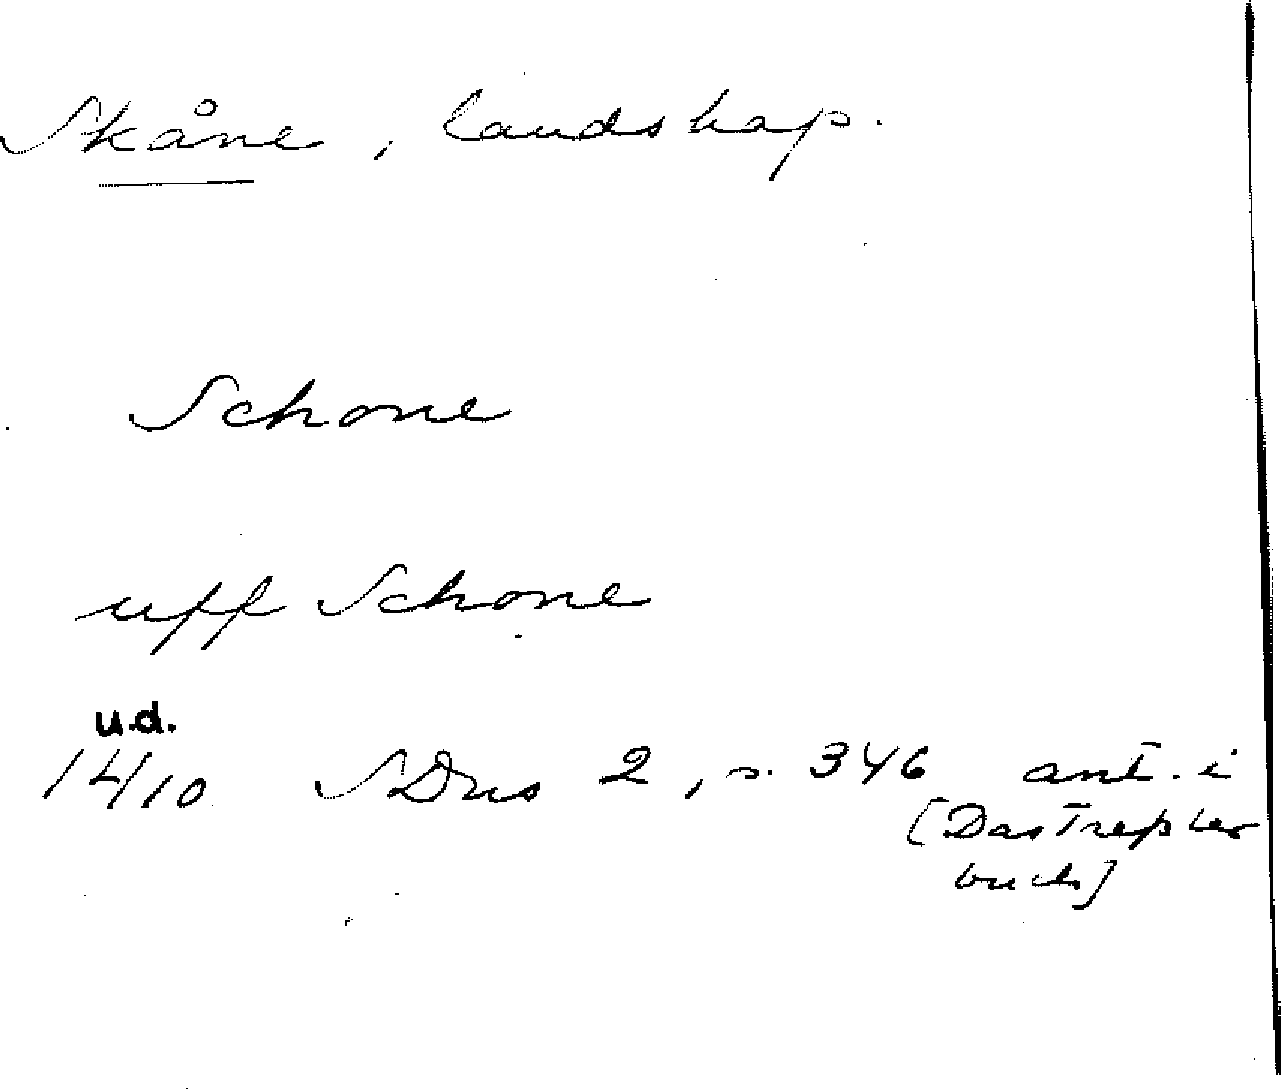 Skåne, landskap.
Schone
uff Schone
u.d.
14/10 SDns 2, s. 346 ant. i
[Das Tresslerbuch]